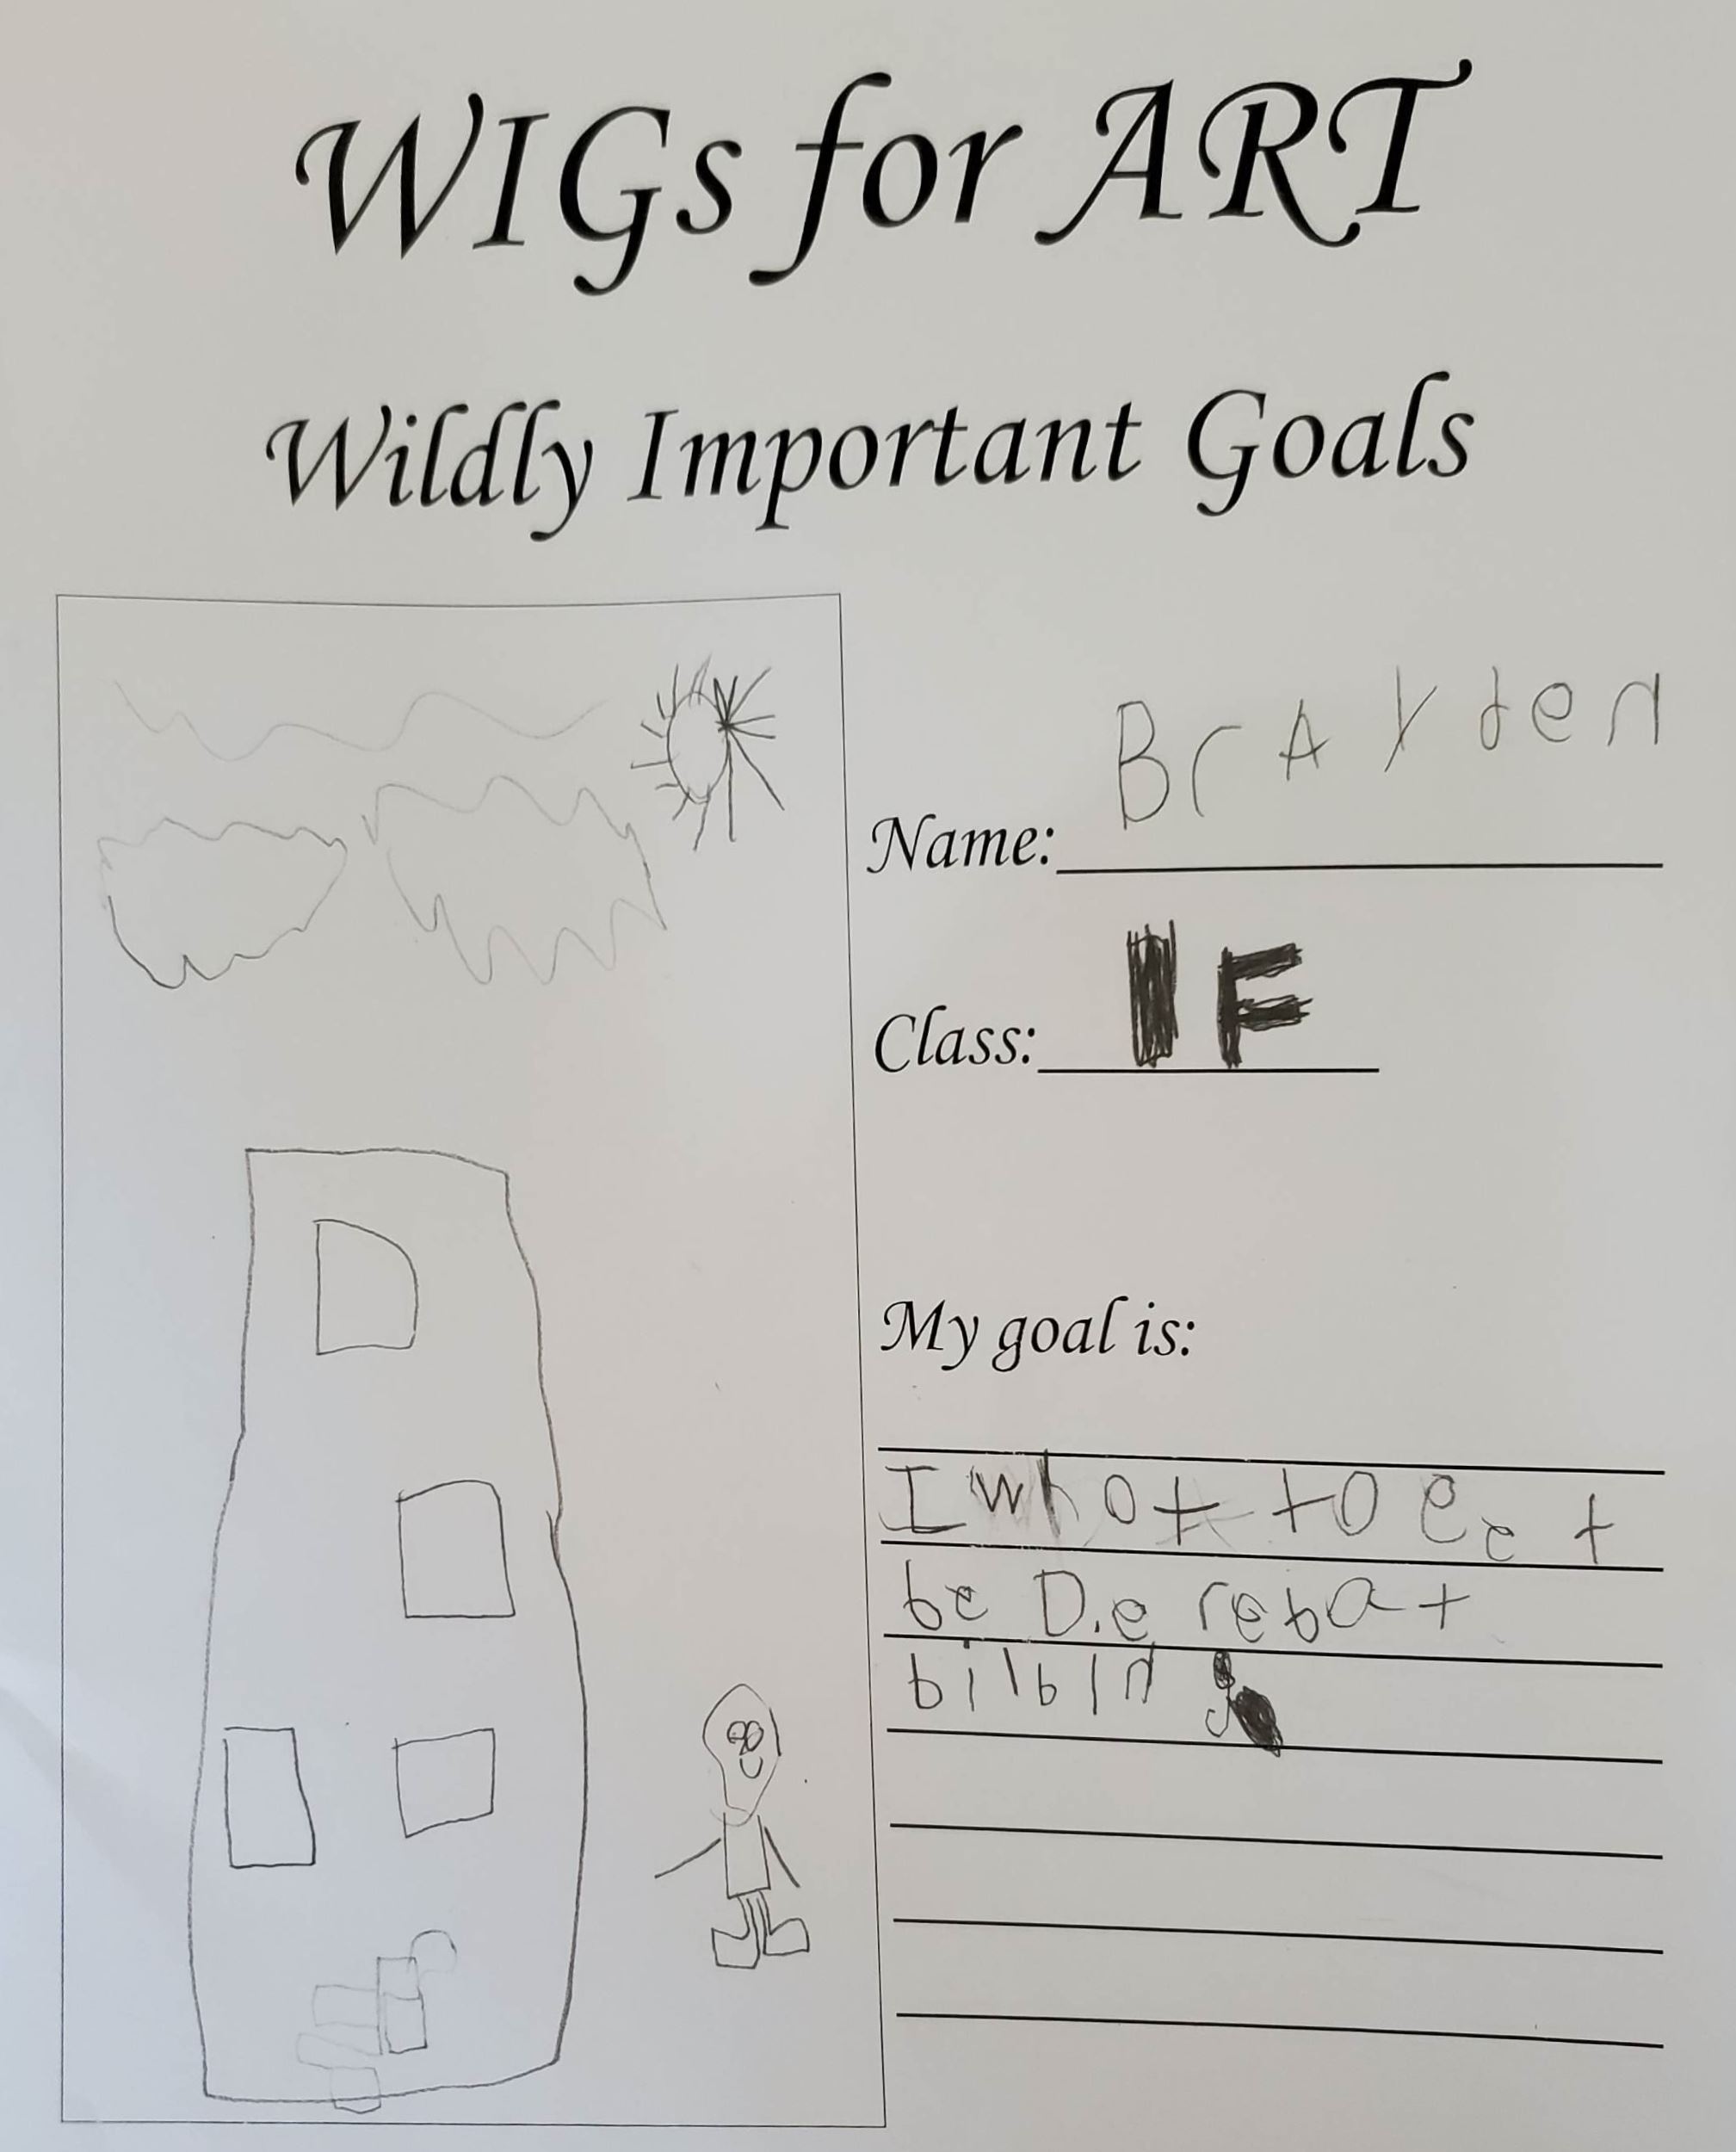 WIGs for ART
Wildly Important Goals
Name: BrAyden
Class: 1F
My goal is:
I whot to eet
be D.e rebat
bilbIng